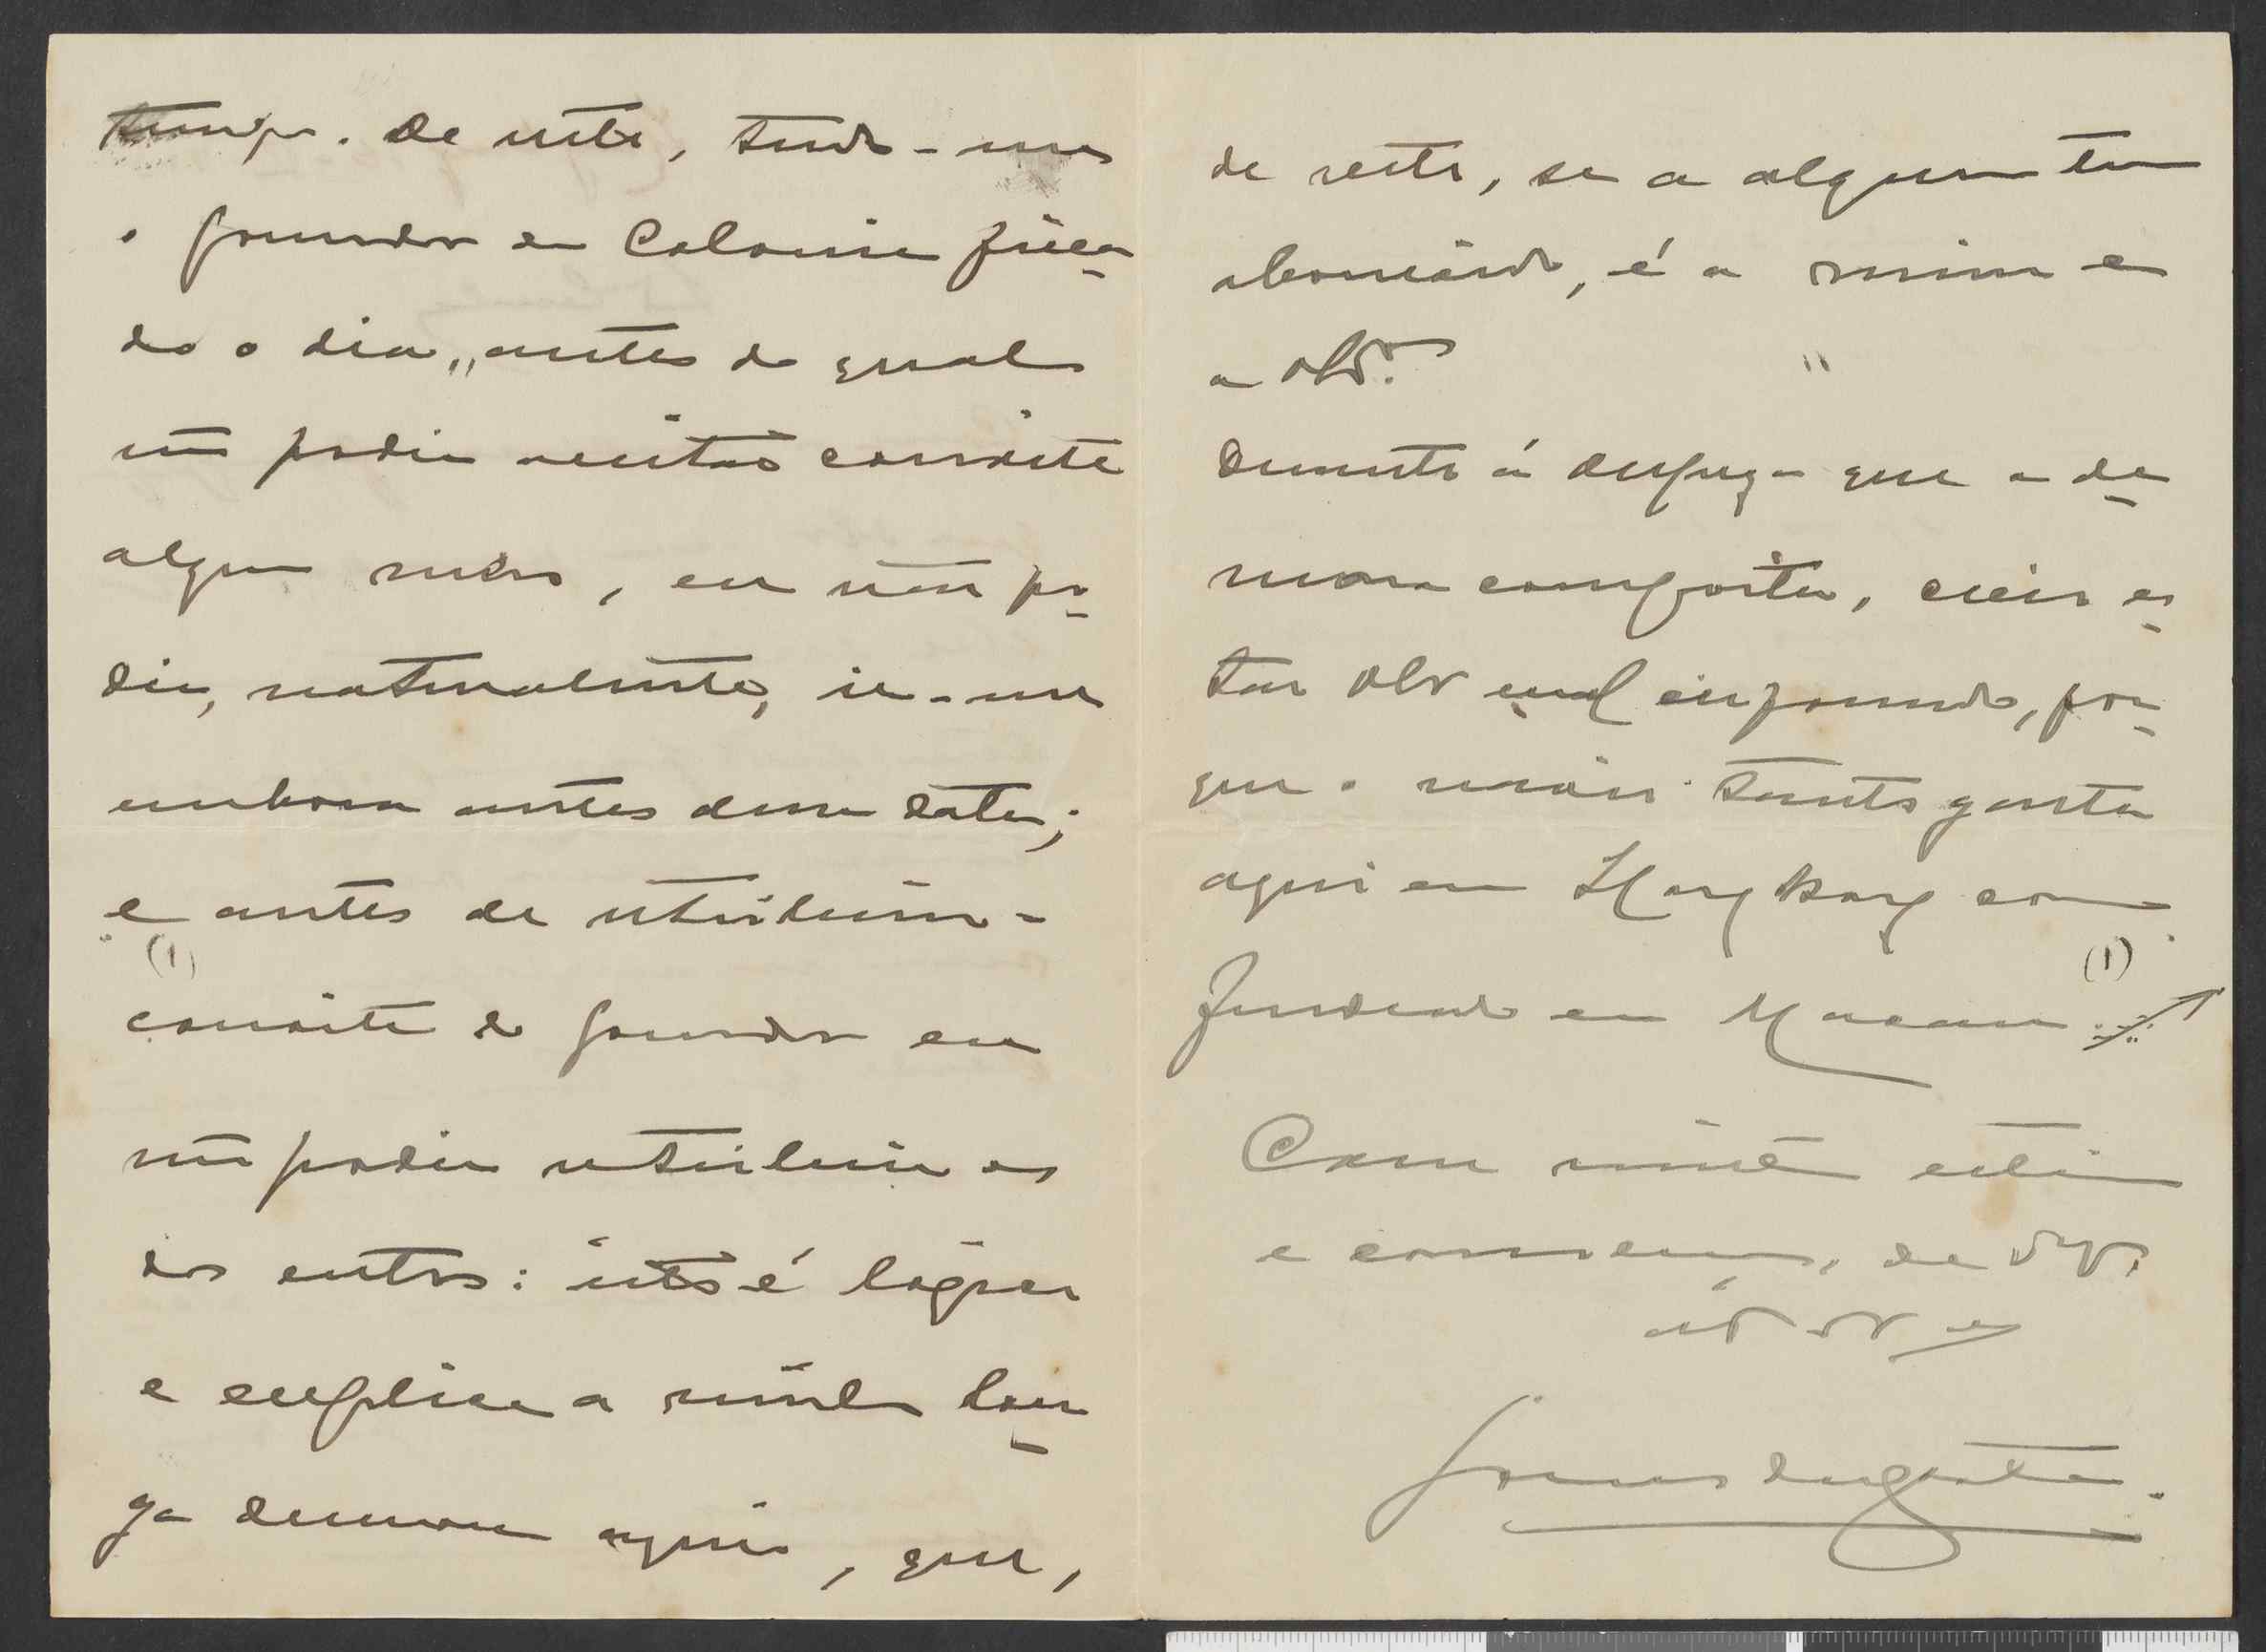 tempo. De resto, tendo-me
o governador da Colonia fixa-
do o dia, antes do qual
não podia aceitar convite
algum meu, eu não po-
dia, naturalmente, ir-me
embora antes dessa data;
e antes de retribuir o
(1)
convite do governador eu
não podia retribuir os
dos outros: isto é logico
e explica a minha lon-
ga demora aqui, que,
de resto, se a alguem tem
aborrecido, é a mim e
a
Quanto á despeza que a de-
mora comporta, creio es-
tar mal informado, por-
que o navio tanto gasta
aqui em Hong Kong como
fundeado em Macau
(1)
Com muita estima
e consideração, de
Gomes da Costa.